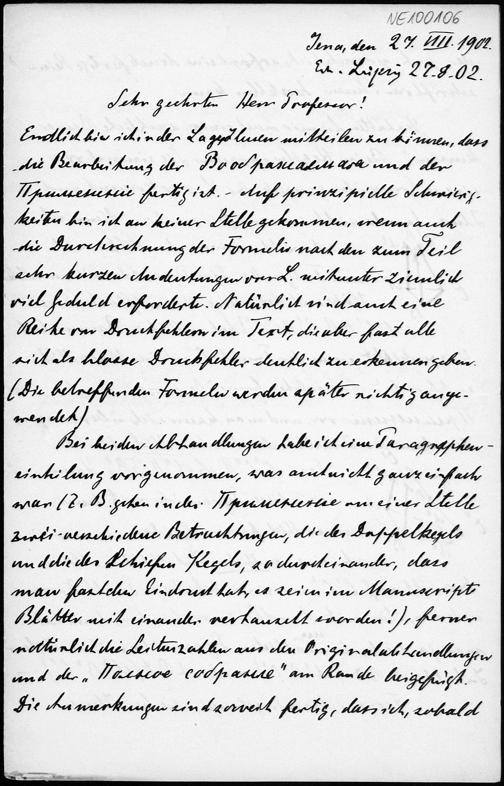 NE100106
Jena, den 27. VIII. 1902.
Erh. Leipzig 27.8.02.
Sehr geehrter Herr Professor!
Endlich bin ich in der Lage, Ihnen mitteilen zu können, dass
die Bearbeitung der Воображаемая und der
Применение fertig ist. - Auf prinzipielle Schwierig-
keiten bin ich an keiner Stelle gekommen, wenn auch
die Durchrechnung der Formeln nach den zum Teil
sehr kurzen Andeutungen von L. mitunter ziemlich
viel Geduld erforderte. Natürlich sind auch eine
Reihe von Druckfehlern im Text, die aber fast alle
sich als blosse Druckfehler deutlich zu erkennen geben.
(Die betreffenden Formeln werden später richtig ange-
wendet)
Bei beiden Abhandlungen habe ich eine Paragraphen-
einteilung vorgenommen, was auch nicht ganz einfach
war (z. B. gehen in der Применение an einer Stelle
zwei verschiedene Betrachtungen, die des Doppelkegels
und die des schiefen Kegels, so durcheinander, dass
man fast den Eindruck hat, es seien im Manuscripte
Blätter mit einander vertauscht worden!), ferner
natürlich die Leitzahlen aus den Originalabhandlungen
und der „Полное собрание" am Rande beigefügt.
Die Anmerkungen sind soweit fertig, dass ich, sobald